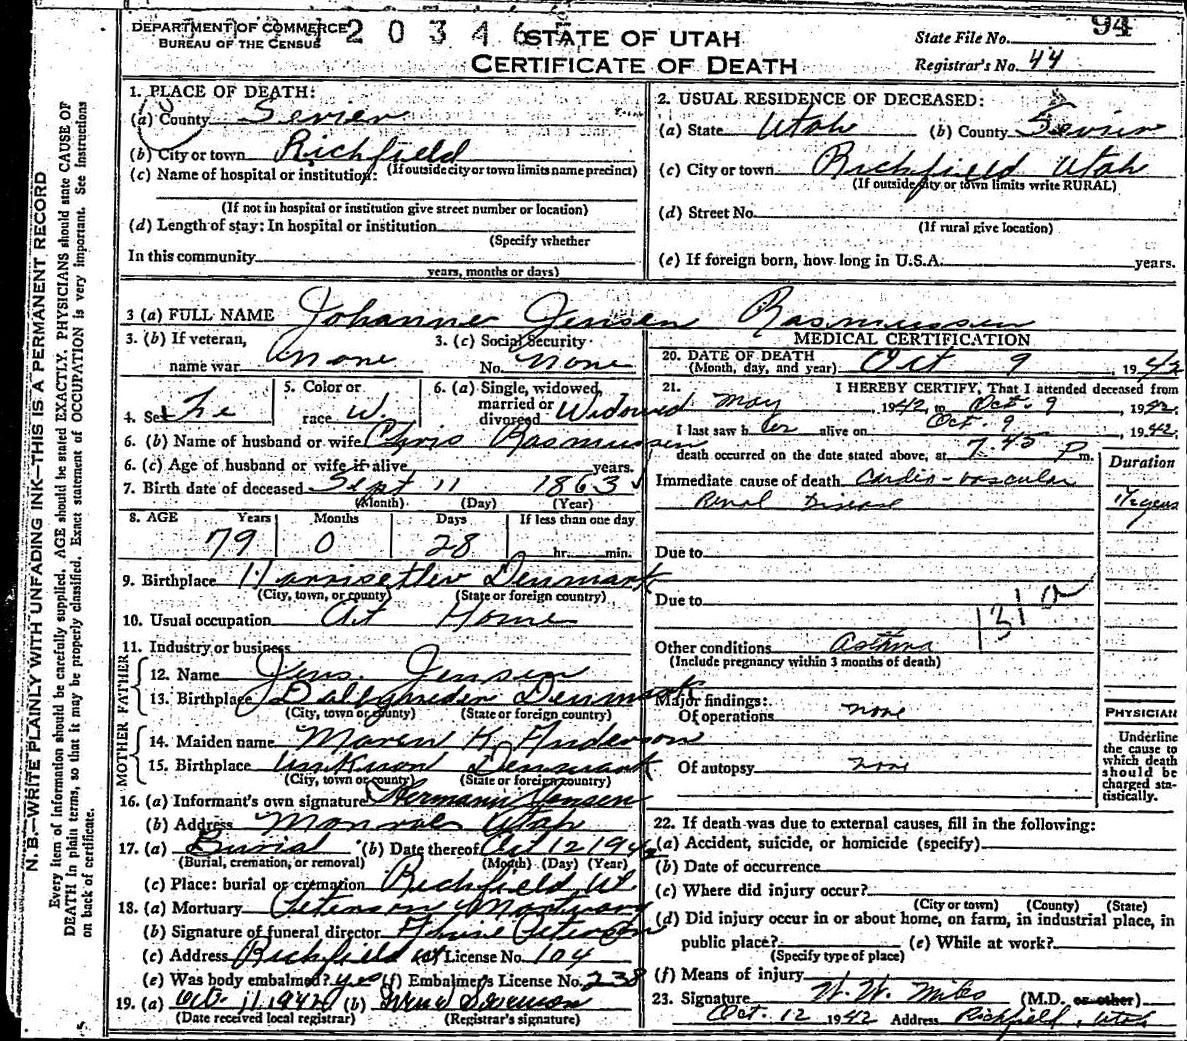 DEPARTMENT OF COMMERCE
BUREAU OF THE CENSUS
2 0 3 4 6
STATE OF UTAH
CERTIFICATE OF DEATH
94
State File No.
Registrar's No. 44
1. PLACE OF DEATH:
(a) County Sevier
(b) City or town Richfield
(If outside city or town limits name precinct)
(c) Name of hospital or institution:
(If not in hospital or institution give street number or location)
(d) Length of stay: In hospital or institution
(Specify whether
In this community
years, months or days)
2. USUAL RESIDENCE OF DECEASED:
(a) State Utah (b) County Sevier
(c) City or town Richfield Utah
(If outside city or town limits write RURAL)
(d) Street No.
(If rural give location)
(e) If foreign born, how long in U.S.A. years.
3 (a) FULL NAME Johanne Jensen Rasmussen
3. (b) If veteran,
name war none
3. (c) Social Security
No. none
4. Sex Fe
5. Color or
race W.
6. (a) Single, widowed,
married or
divorced Widowed
6. (b) Name of husband or wife Chris Rasmussen
6. (c) Age of husband or wife if alive years.
7. Birth date of deceased Sept 11 1863
(Month) (Day) (Year)
8. AGE Years Months Days If less than one day
79 0 28 hr. min.
9. Birthplace Denmark
(City, town, or county) (State or foreign country)
10. Usual occupation At Home
11. Industry or business
FATHER
12. Name Jens Jensen
13. Birthplace Denmark
(City, town or county) (State or foreign country)
MOTHER
14. Maiden name Maren K. Anderson
15. Birthplace Unknown Denmark
(City, town or county) (State or foreign country)
16. (a) Informant's own signature Hermann Jensen
(b) Address Monroe Utah
17. (a) Burial (b) Date thereof Oct 12 1942
(Burial, cremation, or removal) (Month) (Day) (Year)
(c) Place: burial or cremation Richfield, Ut
18. (a) Mortuary Peterson Mortuary
(b) Signature of funeral director Peterson
(c) Address Richfield Ut License No. 104
(e) Was body embalmed? yes (f) Embalmer's License No. 238
19. (a) Oct. 11 1942 (b) Sorenson
(Date received local registrar) (Registrar's signature)
MEDICAL CERTIFICATION
20. DATE OF DEATH
(Month, day, and year) Oct 9, 1942
21. I HEREBY CERTIFY, That I attended deceased from
May, 1942, to Oct. 9, 1942,
I last saw her alive on Oct. 9, 1942,
death occurred on the date stated above, at 7.45 P m.
Duration
Immediate cause of death Cardio-vascular
Renal Disease
1½ years
Due to
Due to
131a
Other conditions Asthma
(Include pregnancy within 3 months of death)
Major findings:
Of operations none
Of autopsy none
PHYSICIAN
Underline
the cause to
which death
should be
charged sta-
tistically.
22. If death was due to external causes, fill in the following:
(a) Accident, suicide, or homicide (specify)
(b) Date of occurrence
(c) Where did injury occur?
(City or town) (County) (State)
(d) Did injury occur in or about home, on farm, in industrial place, in
public place? (e) While at work?
(Specify type of place)
(f) Means of injury
23. Signature W. W. Miles (M.D. or other)
Oct. 12 1942 Address Richfield, Utah
N. B.—WRITE PLAINLY WITH UNFADING INK—THIS IS A PERMANENT RECORD
Every item of information should be carefully supplied. AGE should be stated EXACTLY. PHYSICIANS should state CAUSE OF
DEATH in plain terms, so that it may be properly classified. Exact statement of OCCUPATION is very important. See instructions
on back of certificate.